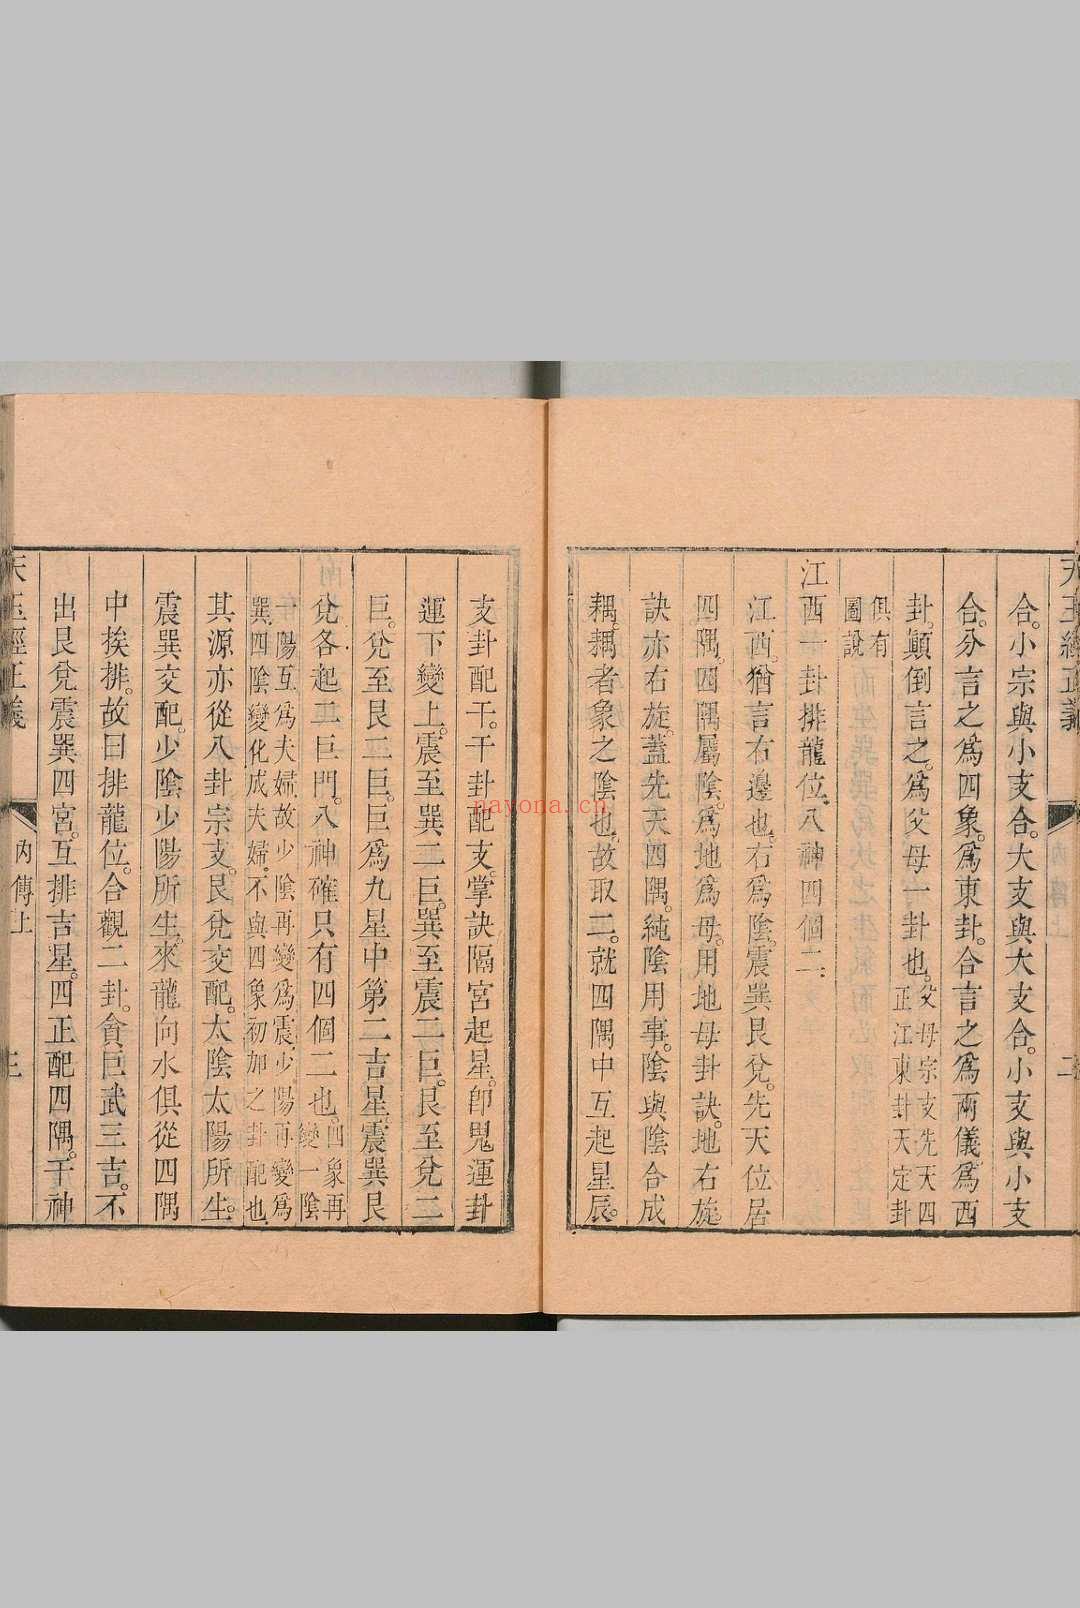 天玉經正義
內傳上
二
合。小宗與小支合。大支與大支合。小支與小支
合。分言之爲四象。爲東卦。合言之爲兩儀爲西
卦。顛倒言之。爲父母一卦也。父母宗支先天四
正江東卦天定卦
俱有
圖說
江西一卦排龍位。八神四個二。
江西。猶言右邊也。右爲陰。震巽艮兌。先天位居
四隅。四隅屬陰。爲地爲母。用地母卦訣。地右旋。
訣亦右旋。蓋先天四隅。純陰用事。陰與陰合成
耦。耦者象之陰也。故取二。就四隅中互起星辰。
支卦配干。干卦配支。掌訣隔宮起星。卽鬼運卦
運下變上。震至巽二巨。巽至震二巨。艮至兌二
巨。兌至艮二巨。巨爲九星中第二吉星。震巽艮
兌各起二巨門。八神確只有四個二也。四象再
變一陰
一陽互爲夫婦。故少陰再變爲震。少陽再變爲
巽。四陰變化成夫婦。不與四象初加之卦配也
其源亦從八卦宗支。艮兌交配。太陰太陽所生。
震巽交配。少陰少陽所生。來龍向水俱從四隅
中挨排。故曰排龍位。合觀二卦。貪巨武三吉。不
出艮兌震巽四宮。互排吉星。四正配四隅。干神
天玉經正義
內傳上
三
nayona.cn